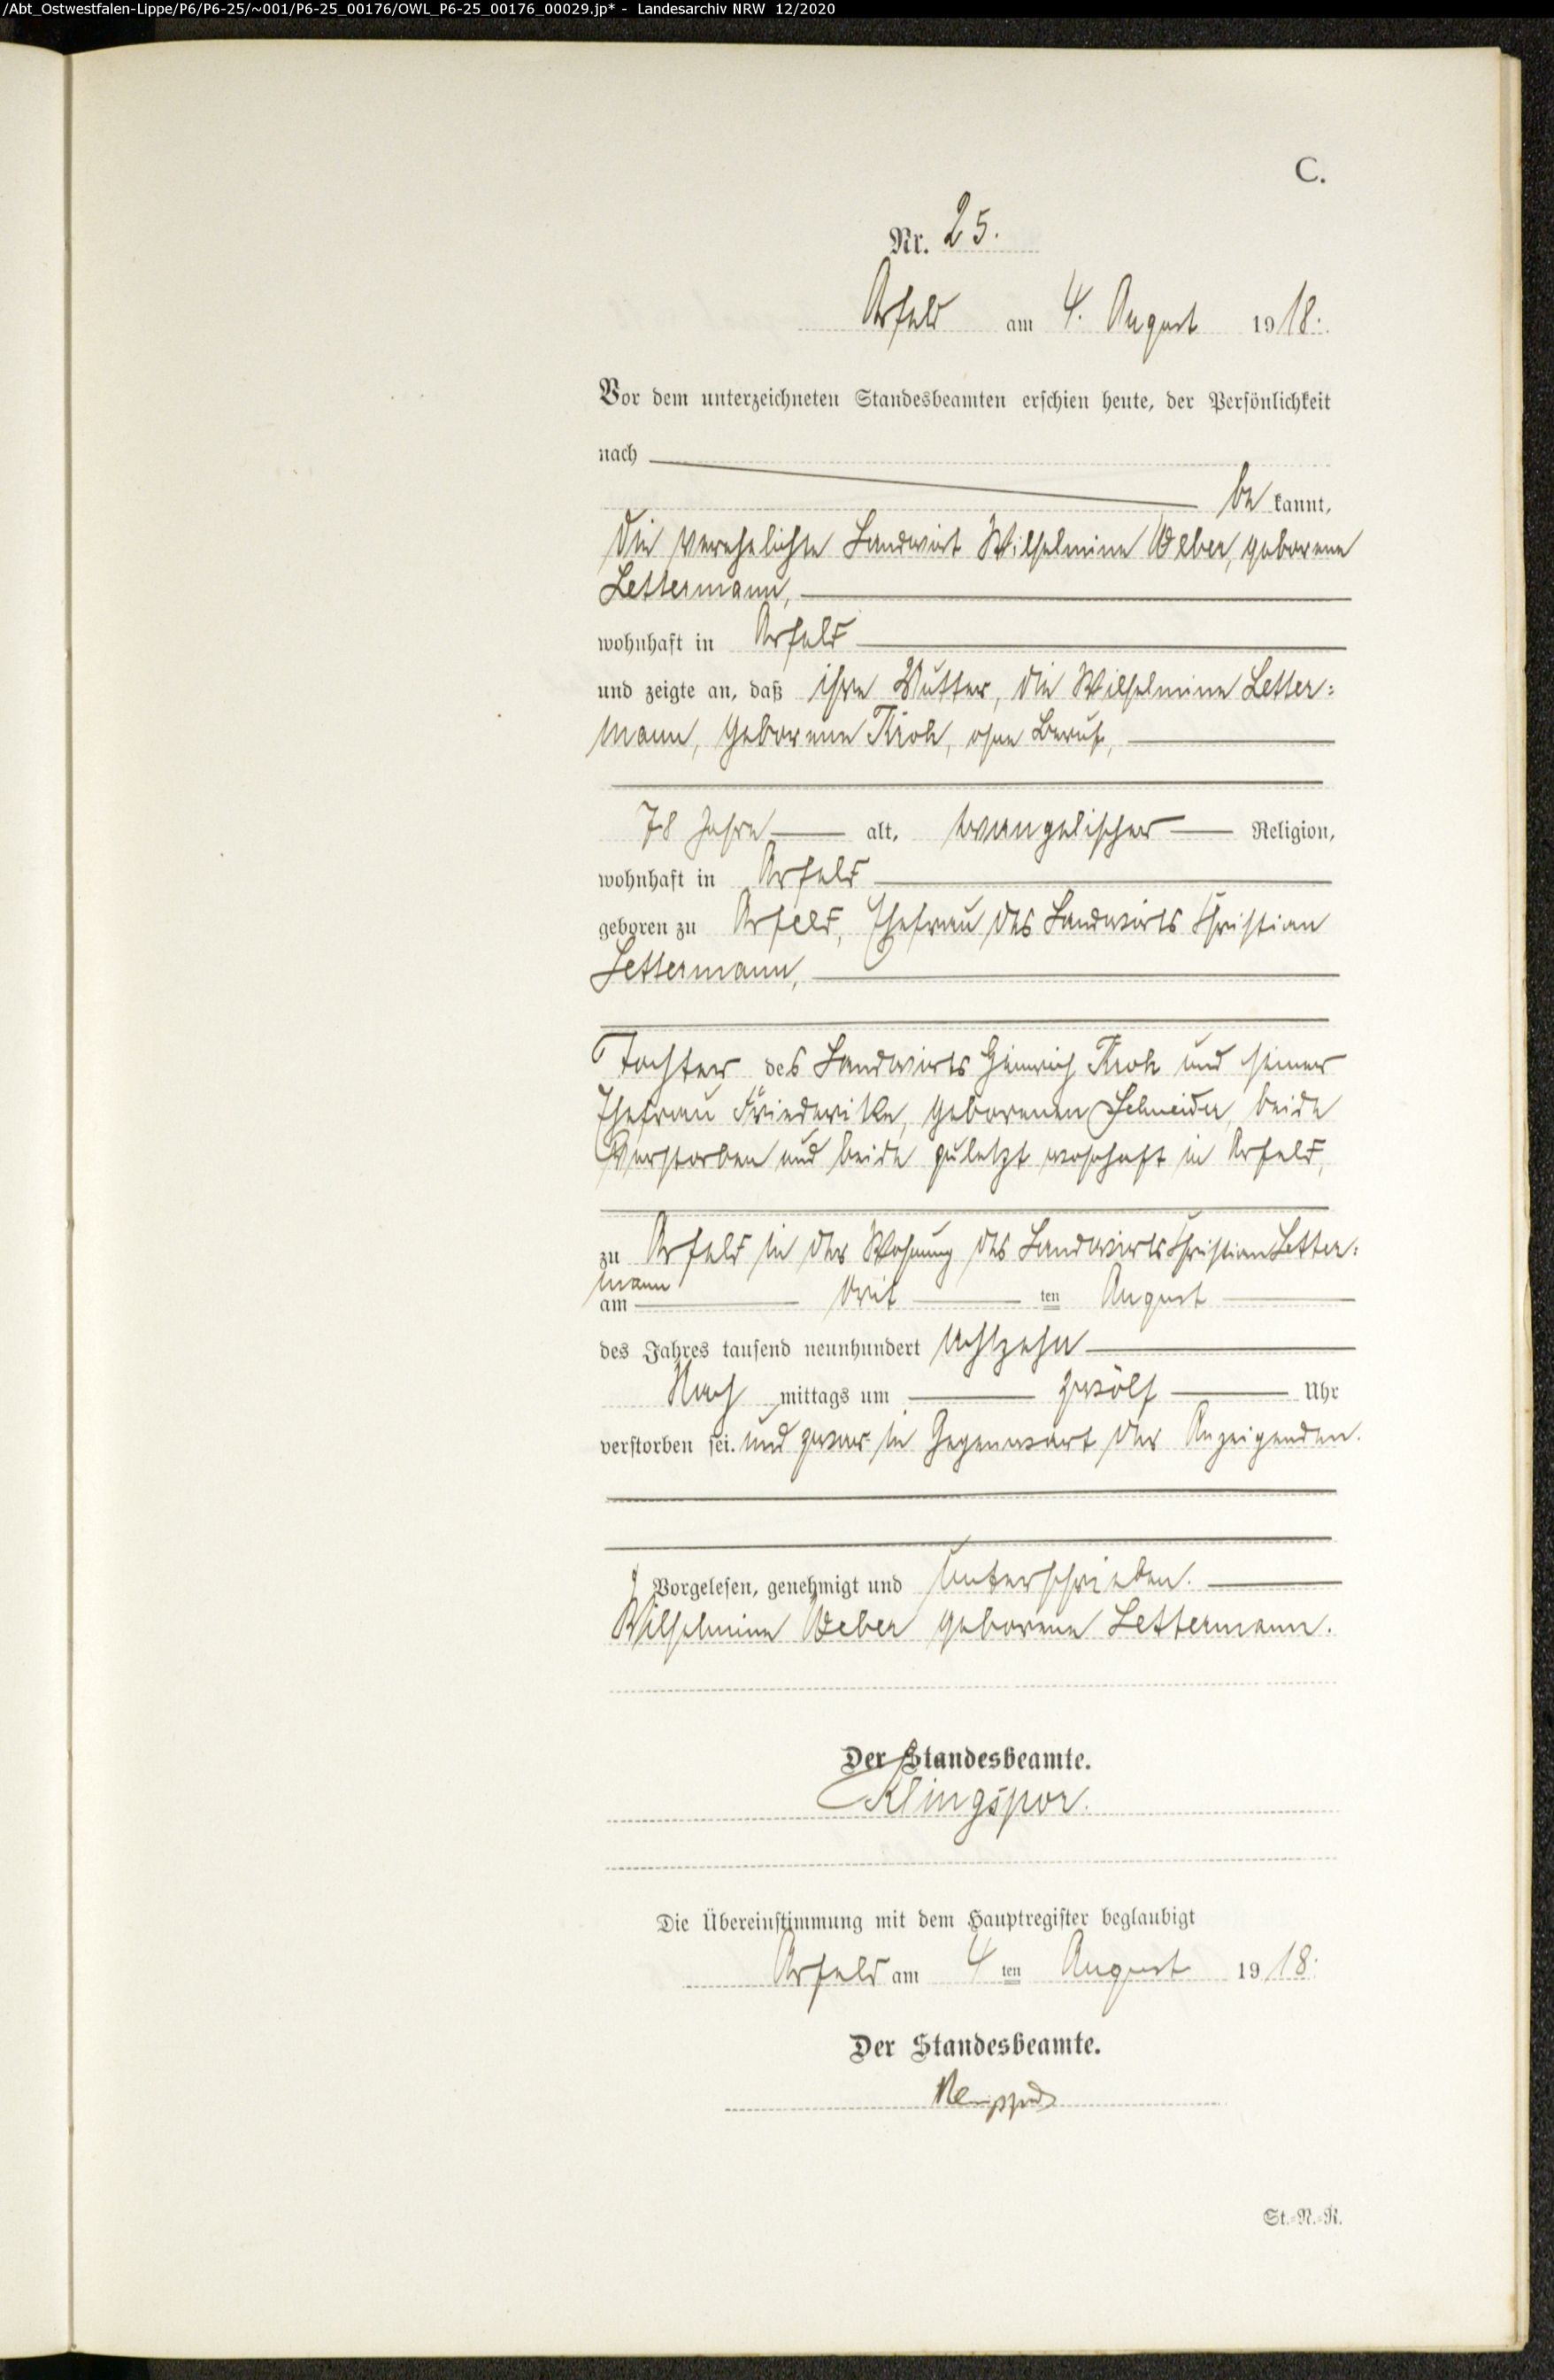 /Abt_Ostwestfalen-Lippe/P6/P6-25/~001/P6-25_00176/OWL_P6-25_00176_00029.jp* - Landesarchiv NRW 12/2020
C.
Nr. 25.
Arfeld am 4. August 1918.
Vor dem unterzeichneten Standesbeamten erschien heute, der Persönlichkeit
nach
be kannt,
die verehelichte Landwirt Wilhelmine Weber, geborene
Lettermann,
wohnhaft in Arfeld
und zeigte an, daß ihre Mutter, die Wilhelmine Letter=
mann, geborene Kroh, ohne Beruf,
78 Jahre alt, evangelischer Religion,
wohnhaft in Arfeld
geboren zu Arfeld, Ehefrau des Landwirts Christian
Lettermann,
Tochter des Landwirts Heinrich Kroh und seiner
Ehefrau Friederike, geborenen Schneider, beide
verstorben und beide zuletzt wohnhaft in Arfeld,
zu Arfeld in der Wohnung des Landwirts Christian Letter=
mann
am drei ten August
des Jahres tausend neunhundert achtzehn
Nach mittags um zwölf Uhr
verstorben sei. und zwar in Gegenwart der Anzeigenden.
Vorgelesen, genehmigt und unterschrieben.
Wilhelmine Weber geborene Lettermann.
Der Standesbeamte.
Klingspor.
Die Übereinstimmung mit dem Hauptregister beglaubigt
Arfeld am 4 ten August 1918.
Der Standesbeamte.
St.=N.=R.